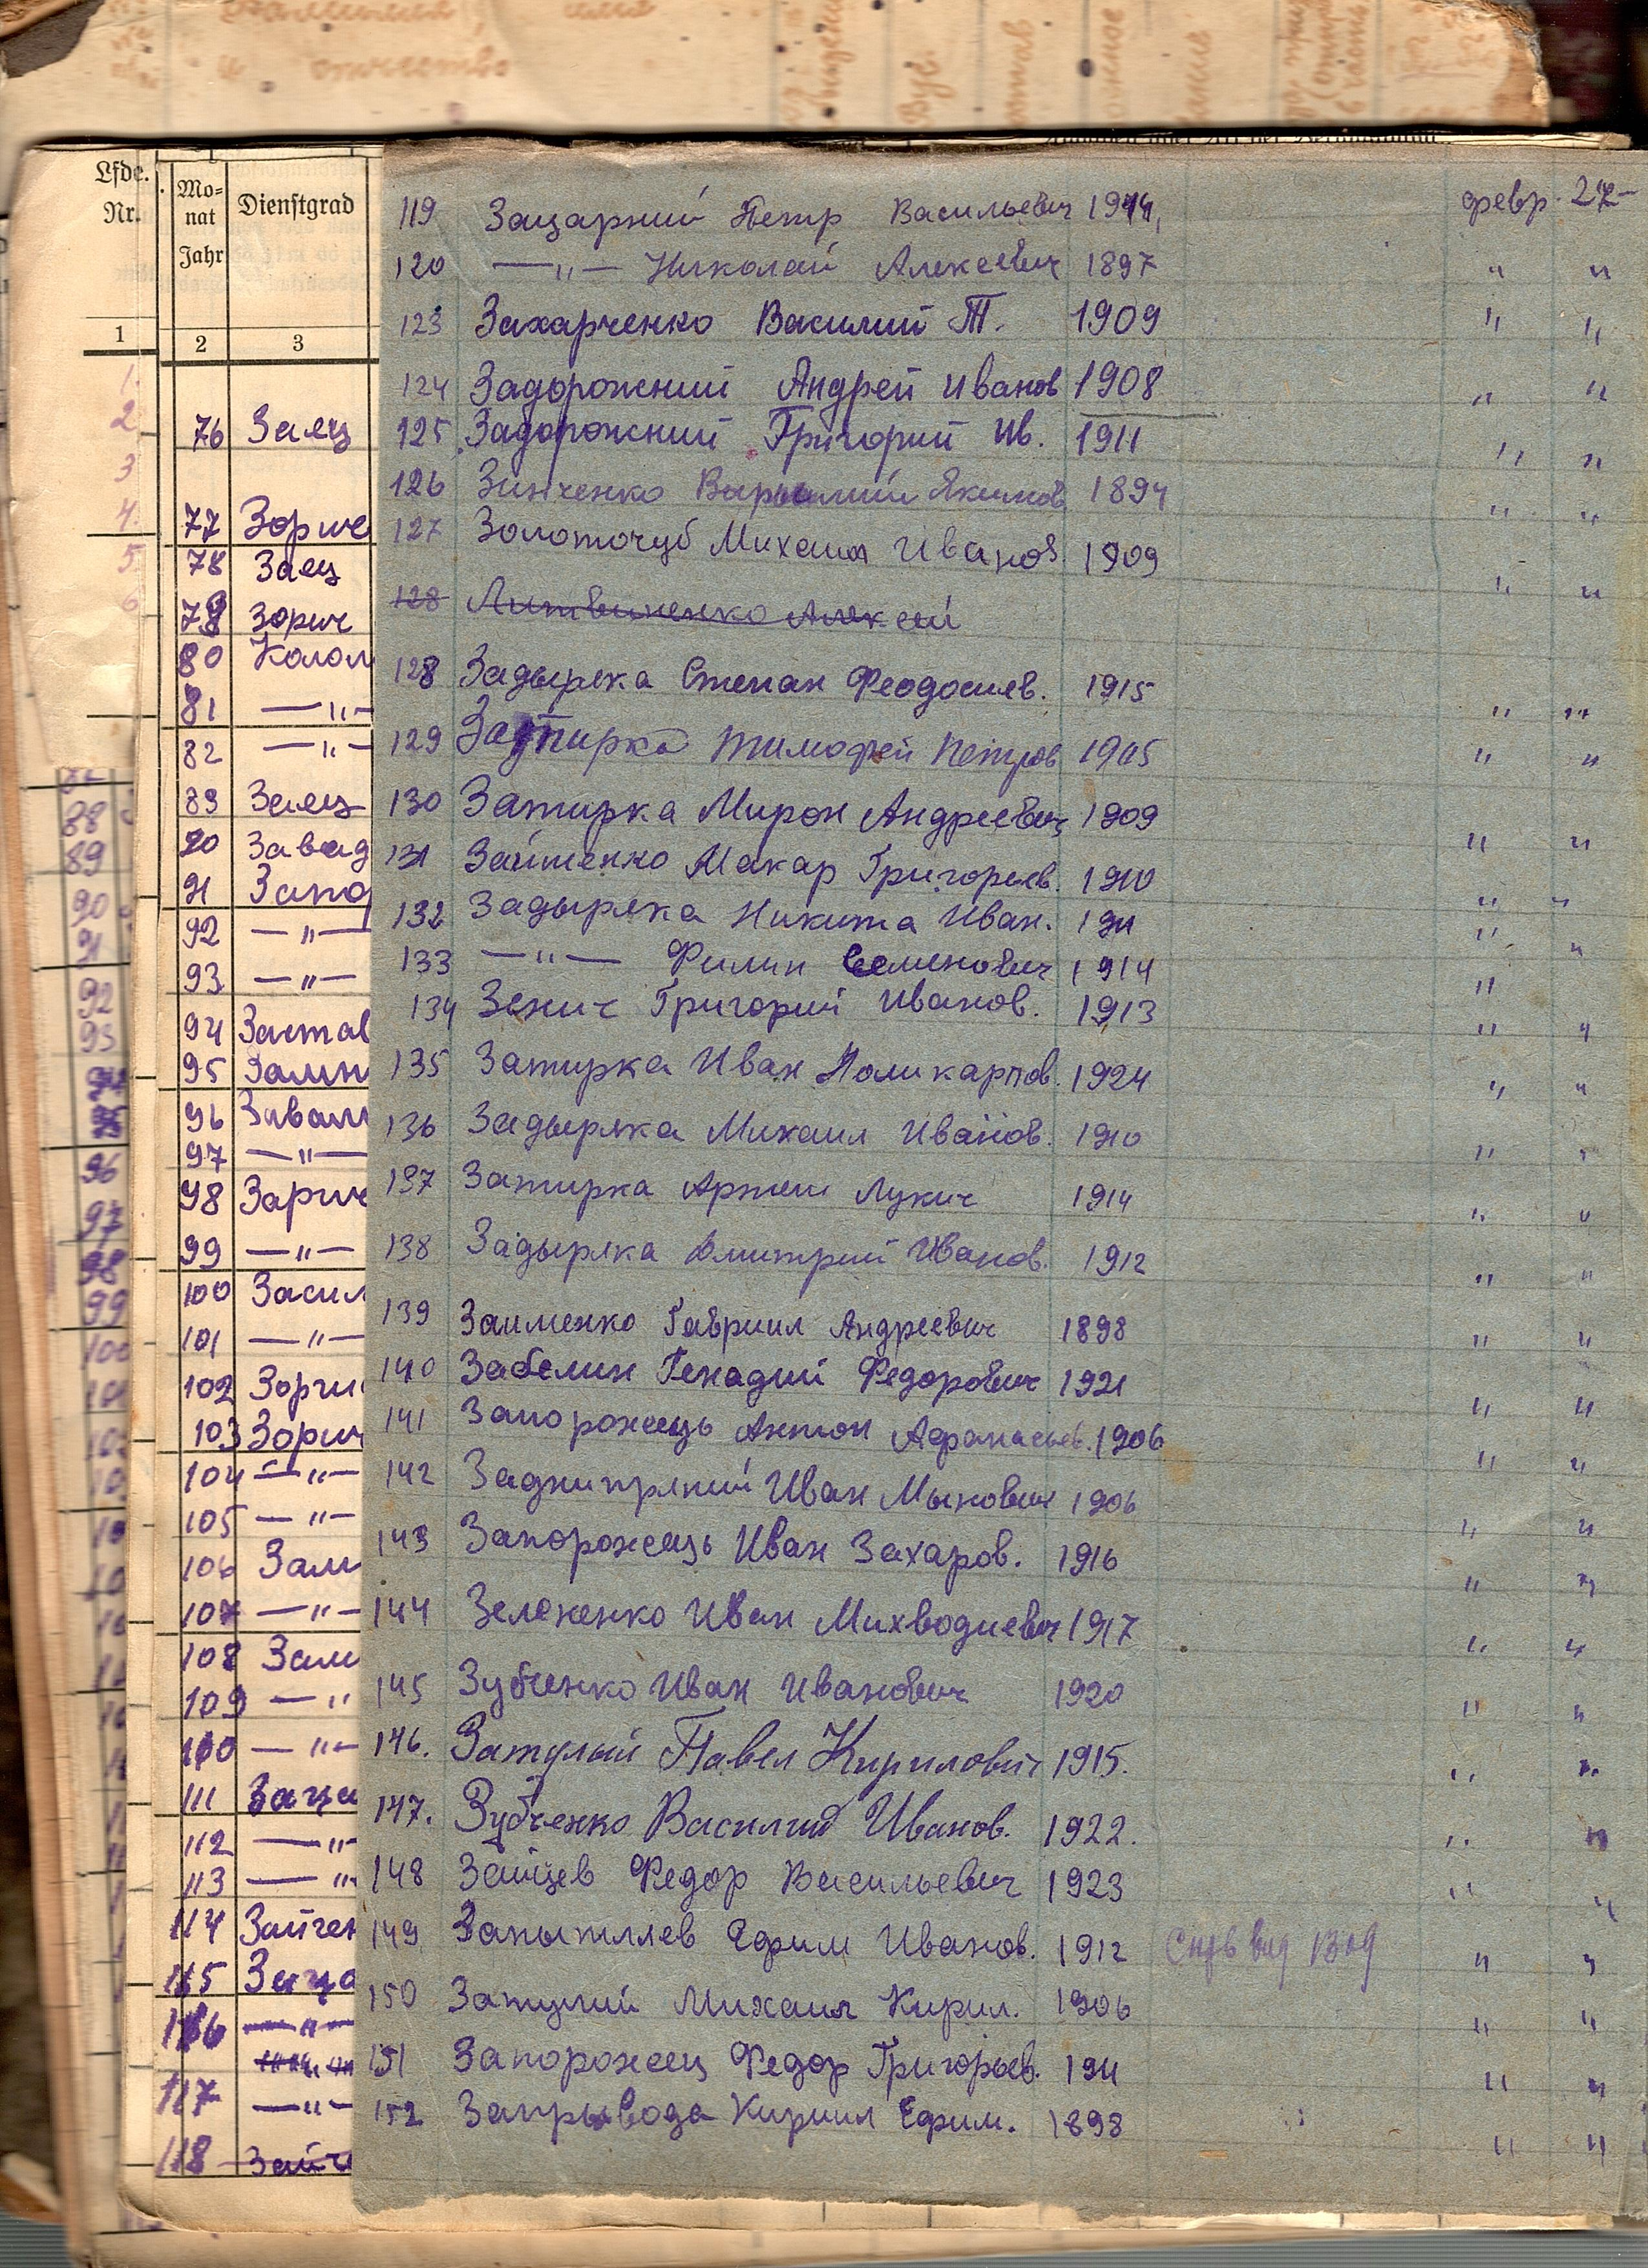 фамилия, имя
и отчество
Lfde. Nr.
Monat Jahr
Dienstgrad
1 2 3
1.
2
3
4.
5
6
76 Заец
77 Зориче
78 Заец
79 Зорич
80 Колом
81 —"—
82 —"—
83 Заец
90 Завад
91 Запо
92 —"—
93 —"—
94 Застав
95
96
97 —"—
98 Зарич
99 —"—
100 Засил
101 —"—
102
103 Зорич
104 —"—
105 —"—
106 Зам
107 —"—
108 Зам
109 —"
110 —"—
111 Заца
112 —"—
113 —"—
114 Зайчен
115 Заца
116 —"—
117 —"—
118 Зайч
88
89
90
91
92
93
94
95
96
97
98
99
100
101
119 Зацарний Петр Васильевич февр. 27—
120 —"— Николай Алексеевич 1897 " "
123 Захарченко Василий Т. 1909 " "
124 Задорожний Андрей Иванов 1908 " "
125 Задорожний Григорий Ив. 1911 " "
126 Зинченко Якимов 1894 " "
127 Золоточуб Михаил Иванов 1909 " "
128 Литвиненко Алексей
128 Задыряка Степан Феодосиев. 1915 " "
129 Затирка Тимофей Петров " "
130 Затирка Мирон Андреевич 1909 " "
131 Макар Григорьев. 1910 " "
132 Задыряка Никита Иван. 1911 " "
133 —"— Филип Семенович 1914 "
134 Зенич Григорий Иванов. 1913 " "
135 Затирка Иван Поликарпов. 1924 " "
136 Задыряка Михаил Иванов. 1910 " "
137 Затирка Артем Лукич 1914 " "
138 Задыряка Дмитрий Иванов. 1912 " "
139 Заименко Гавриил Андреевич 1898 " "
140 Забелин Генадий Федорович 1921 " "
141 Запорожець Антон Афанасьев. 1906 " "
142 Заднипряний Иван Мынович 1906 " "
143 Запорожець Иван Захаров. 1916 " "
144 Зелененко Иван 1917 " "
145 Зубченко Иван Иванович 1920 " "
146. Затулый Павел Кирилович 1915. " "
147. Зубченко Василий Иванов. 1922. " "
148 Зайцев Федор Васильевич 1923 " "
149 Запытляев Ефим Иванов. 1912 " "
150 Затулий Михаил Кирил. 1906 " "
151 Запорожец Федор Григорьев. 1911 " "
152 Запрывода Кирил Ефим. 1898 " "